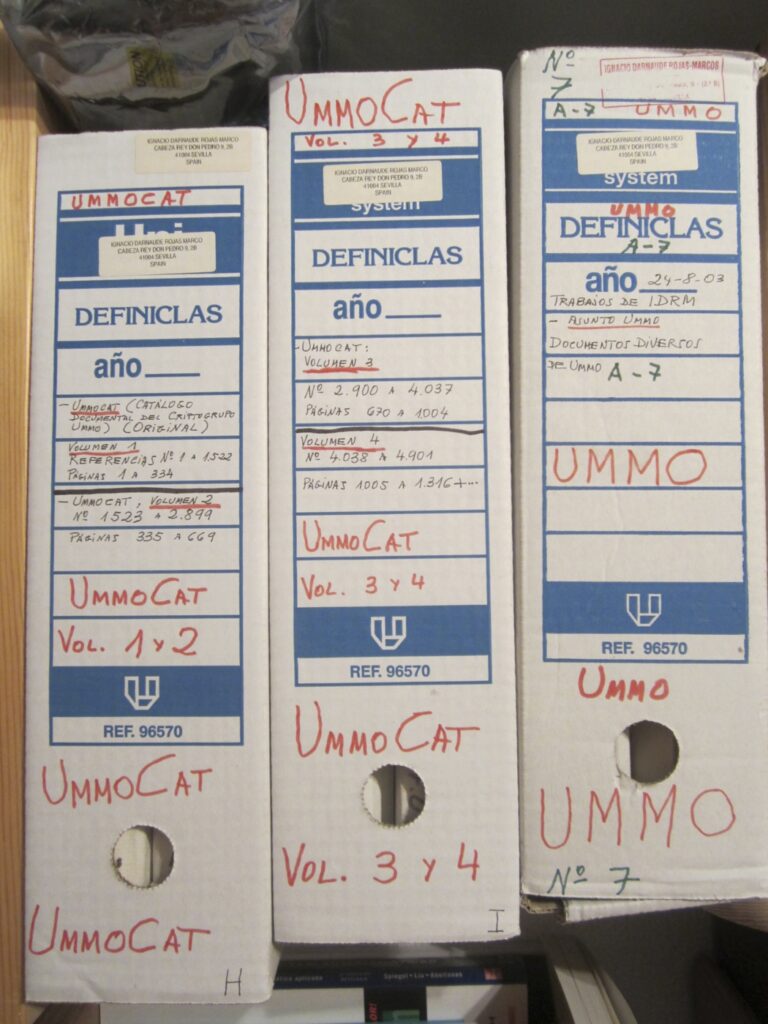 IGNACIO DARNAUDE ROJAS MARCO
CABEZA REY DON PEDRO 9, 2B
41004 SEVILLA
SPAIN
UMMOCAT
Uni
IGNACIO DARNAUDE ROJAS MARCO
CABEZA REY DON PEDRO 9, 2B
41004 SEVILLA
SPAIN
DEFINICLAS
año
- UMMOCAT (CATÁLOGO
DOCUMENTAL DEL CRIPTOGRUPO
UMMO) (ORIGINAL)
VOLUMEN 1
REFERENCIAS Nº 1 A 1.522
PÁGINAS 1 A 334
- UMMOCAT, VOLUMEN 2
Nº 1523 A 2.899
PÁGINAS 335 A 669
UMMOCAT
VOL. 1 Y 2
REF. 96570
UMMOCAT
UMMOCAT
H
UMMOCAT
VOL. 3 Y 4
IGNACIO DARNAUDE ROJAS MARCO
CABEZA REY DON PEDRO 9, 2B
41004 SEVILLA
SPAIN
system
DEFINICLAS
año
- UMMOCAT:
VOLUMEN 3
Nº 2.900 A 4.037
PÁGINAS 670 A 1004
VOLUMEN 4
Nº 4.038 A 4.901
PÁGINAS 1005 A 1.316+...
UMMOCAT
VOL. 3 Y 4
REF. 96570
UMMOCAT
VOL. 3 Y 4
I
Nº
7
IGNACIO DARNAUDE ROJAS-MARCOS
A-7 UMMO
IGNACIO DARNAUDE ROJAS MARCO
CABEZA REY DON PEDRO 9, 2B
41004 SEVILLA
SPAIN
system
UMMO
DEFINICLAS
A-7
año 24-8-03
TRABAJOS DE IDRM
- ASUNTO UMMO
DOCUMENTOS DIVERSOS
DE UMMO A-7
UMMO
REF. 96570
UMMO
UMMO
Nº 7